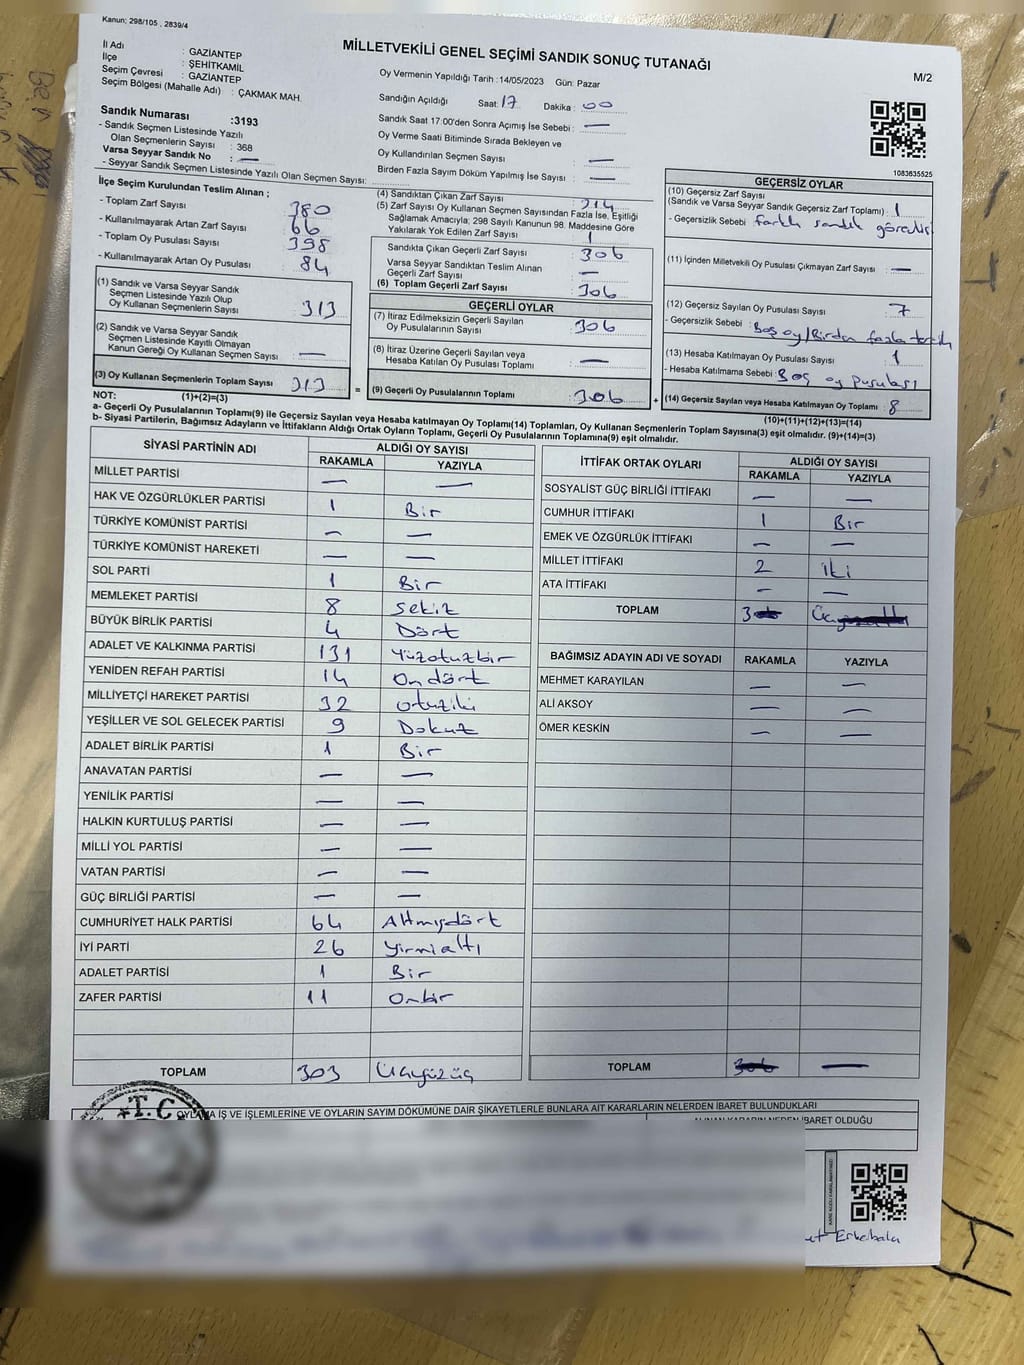 Kanun; 298/105 , 2839/4
MİLLETVEKİLİ GENEL SEÇİMİ SANDIK SONUÇ TUTANAĞI
M/2
İl Adı : GAZİANTEP
İlçe : ŞEHİTKAMİL
Seçim Çevresi : GAZİANTEP
Seçim Bölgesi (Mahalle Adı) : ÇAKMAK MAH.
Sandık Numarası :3193
- Sandık Seçmen Listesinde Yazılı
Olan Seçmenlerin Sayısı : 368
Varsa Seyyar Sandık No : —
- Seyyar Sandık Seçmen Listesinde Yazılı Olan Seçmen Sayısı:
Oy Vermenin Yapıldığı Tarih :14/05/2023 Gün: Pazar
Sandığın Açıldığı Saat: 17 Dakika : 00
Sandık Saat 17:00'den Sonra Açımış İse Sebebi : —
Oy Verme Saati Bitiminde Sırada Bekleyen ve
Oy Kullandırılan Seçmen Sayısı —
Birden Fazla Sayım Döküm Yapılmış İse Sayısı : —
1083635525
İlçe Seçim Kurulundan Teslim Alınan ;
- Toplam Zarf Sayısı 380
- Kullanılmayarak Artan Zarf Sayısı : 66
- Toplam Oy Pusulası Sayısı 398
- Kullanılmayarak Artan Oy Pusulası : 84
(1) Sandık ve Varsa Seyyar Sandık
Seçmen Listesinde Yazılı Olup
Oy Kullanan Seçmenlerin Sayısı : 313
(2) Sandık ve Varsa Seyyar Sandık
Seçmen Listesinde Kayıtlı Olmayan
Kanun Gereği Oy Kullanan Seçmen Sayısı : —
(3) Oy Kullanan Seçmenlerin Toplam Sayısı 313 =
(4) Sandıktan Çıkan Zarf Sayısı : 314
(5) Zarf Sayısı Oy Kullanan Seçmen Sayısından Fazla İse, Eşitliği
Sağlamak Amacıyla; 298 Sayılı Kanunun 98. Maddesine Göre
Yakılarak Yok Edilen Zarf Sayısı : 1
Sandıkta Çıkan Geçerli Zarf Sayısı : 306
Varsa Seyyar Sandıktan Teslim Alınan
Geçerli Zarf Sayısı : —
(6) Toplam Geçerli Zarf Sayısı : 306
GEÇERLİ OYLAR
(7) İtiraz Edilmeksizin Geçerli Sayılan
Oy Pusulalarının Sayısı : 306
(8) İtiraz Üzerine Geçerli Sayılan veya
Hesaba Katılan Oy Pusulası Toplamı : —
(9) Geçerli Oy Pusulalarının Toplamı : 306 +
GEÇERSİZ OYLAR
(10) Geçersiz Zarf Sayısı
(Sandık ve Varsa Seyyar Sandık Geçersiz Zarf Toplamı) : 1
- Geçersizlik Sebebi : farklı sandık görevlisi
(11) İçinden Milletvekili Oy Pusulası Çıkmayan Zarf Sayısı : —
(12) Geçersiz Sayılan Oy Pusulası Sayısı : 7
- Geçersizlik Sebebi : Boş oy/Birden fazla tercih
(13) Hesaba Katılmayan Oy Pusulası Sayısı : 1
- Hesaba Katılmama Sebebi : Boş oy pusulası
(14) Geçersiz Sayılan veya Hesaba Katılmayan Oy Toplamı : 8
NOT: (1)+(2)=(3)
(10)+(11)+(12)+(13)=(14)
a- Geçerli Oy Pusulalarının Toplamı(9) ile Geçersiz Sayılan veya Hesaba katılmayan Oy Toplamı(14) Toplamları, Oy Kullanan Seçmenlerin Toplam Sayısına(3) eşit olmalıdır. (9)+(14)=(3)
b- Siyasi Partilerin, Bağımsız Adayların ve İttifakların Aldığı Ortak Oyların Toplamı, Geçerli Oy Pusulalarının Toplamına(9) eşit olmalıdır.
SİYASİ PARTİNİN ADI ALDIĞI OY SAYISI
RAKAMLA YAZIYLA
MİLLET PARTİSİ — —
HAK VE ÖZGÜRLÜKLER PARTİSİ 1 Bir
TÜRKİYE KOMÜNİST PARTİSİ — —
TÜRKİYE KOMÜNİST HAREKETİ — —
SOL PARTİ 1 Bir
MEMLEKET PARTİSİ 8 Sekiz
BÜYÜK BİRLİK PARTİSİ 4 Dört
ADALET VE KALKINMA PARTİSİ 131 Yüzotuzbir
YENİDEN REFAH PARTİSİ 14 Ondört
MİLLİYETÇİ HAREKET PARTİSİ 32 otuziki
YEŞİLLER VE SOL GELECEK PARTİSİ 9 Dokuz
ADALET BİRLİK PARTİSİ 1 Bir
ANAVATAN PARTİSİ — —
YENİLİK PARTİSİ — —
HALKIN KURTULUŞ PARTİSİ — —
MİLLİ YOL PARTİSİ — —
VATAN PARTİSİ — —
GÜÇ BİRLİĞİ PARTİSİ — —
CUMHURİYET HALK PARTİSİ 64 Altmışdört
İYİ PARTİ 26 Yirmialtı
ADALET PARTİSİ 1 Bir
ZAFER PARTİSİ 11 Onbir
TOPLAM 303 Üçyüzüç
İTTİFAK ORTAK OYLARI ALDIĞI OY SAYISI
RAKAMLA YAZIYLA
SOSYALİST GÜÇ BİRLİĞİ İTTİFAKI — —
CUMHUR İTTİFAKI 1 Bir
EMEK VE ÖZGÜRLÜK İTTİFAKI — —
MİLLET İTTİFAKI 2 iki
ATA İTTİFAKI — —
TOPLAM 306 Üçyüzaltı
BAĞIMSIZ ADAYIN ADI VE SOYADI RAKAMLA YAZIYLA
MEHMET KARAYILAN — —
ALİ AKSOY — —
ÖMER KESKİN — —
TOPLAM 306 —
OYLAMA İŞ VE İŞLEMLERİNE VE OYLARIN SAYIM DÖKÜMÜNE DAİR ŞİKAYETLERLE BUNLARA AİT KARARLARIN NELERDEN İBARET BULUNDUKLARI
ALINAN KARARIN NEDEN İBARET OLDUĞU
T.C.